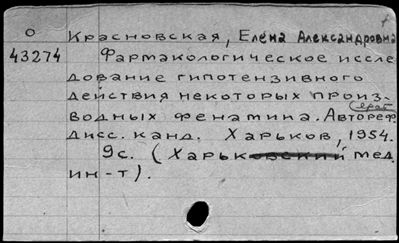 О Красновская, Елена Александровна
43274 Фармакологическое иссле-
дование гипотензивного
действия некоторых произ-
водных фенатина. Автореф.
дисс. канд. Харьков, 1954.
9с. (Харьковский мед.
ин-т).